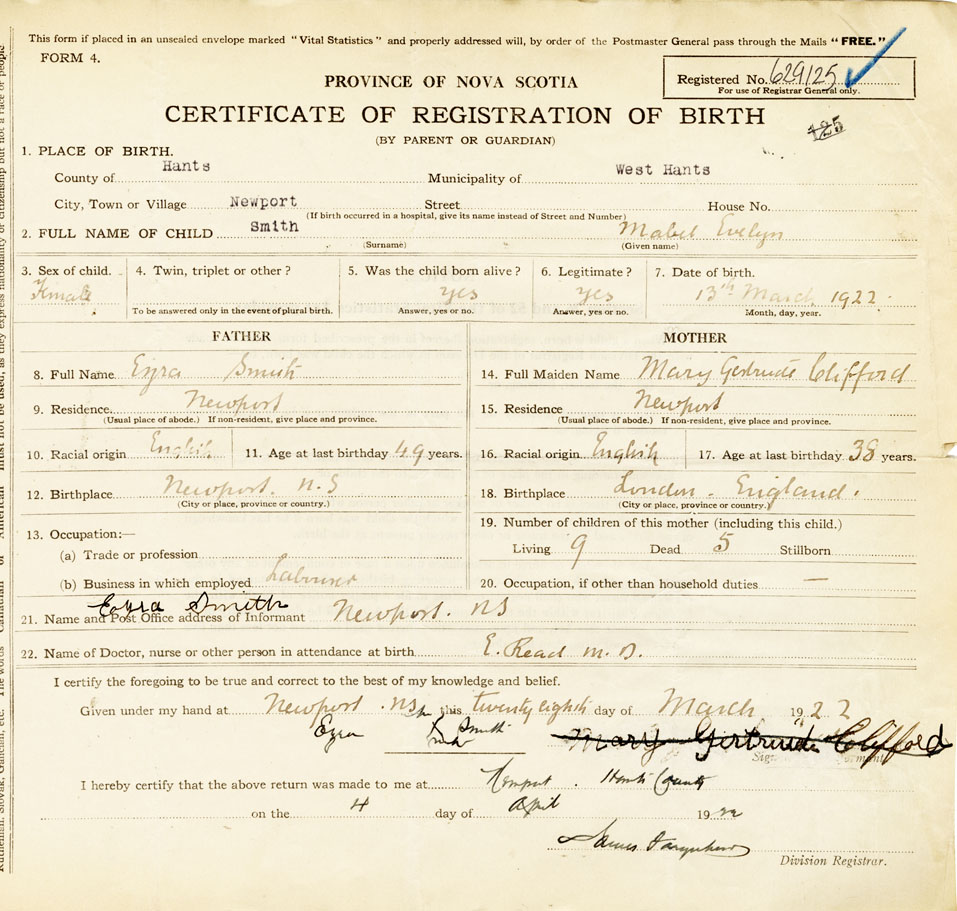 This form if placed in an unsealed envelope marked "Vital Statistics" and properly addressed will, by order of the Postmaster General pass through the Mails "FREE."
FORM 4.
Registered No. 629125
For use of Registrar General only.
PROVINCE OF NOVA SCOTIA
CERTIFICATE OF REGISTRATION OF BIRTH
125
(BY PARENT OR GUARDIAN)
1. PLACE OF BIRTH.
County of Hants Municipality of West Hants
City, Town or Village Newport Street House No.
(If birth occurred in a hospital, give its name instead of Street and Number)
2. FULL NAME OF CHILD Smith Mabel Evelyn
(Surname) (Given name)
3. Sex of child. 4. Twin, triplet or other? 5. Was the child born alive? 6. Legitimate? 7. Date of birth.
Female yes yes 13th March 1922
To be answered only in the event of plural birth. Answer, yes or no. Answer, yes or no. Month, day, year.
FATHER MOTHER
8. Full Name Ezra Smith 14. Full Maiden Name Mary Gertrude Clifford
9. Residence Newport 15. Residence Newport
(Usual place of abode.) If non-resident, give place and province. (Usual place of abode.) If non-resident, give place and province.
10. Racial origin English 11. Age at last birthday 49 years. 16. Racial origin English 17. Age at last birthday 38 years.
12. Birthplace Newport. N.S 18. Birthplace London - England.
(City or place, province or country.) (City or place, province or country.)
19. Number of children of this mother (including this child.)
13. Occupation:—
(a) Trade or profession Living 9 Dead 5 Stillborn
(b) Business in which employed Labourer 20. Occupation, if other than household duties —
Ezra Smith
21. Name and Post Office address of Informant Newport. NS
22. Name of Doctor, nurse or other person in attendance at birth E. Read M.D.
I certify the foregoing to be true and correct to the best of my knowledge and belief.
Given under my hand at Newport. NS this twenty eighth day of March 1922
Ezra Smith Mary Gertrude Clifford
I hereby certify that the above return was made to me at Newport. Hants County
on the 4 day of April 1922
James Farquhar
Division Registrar.